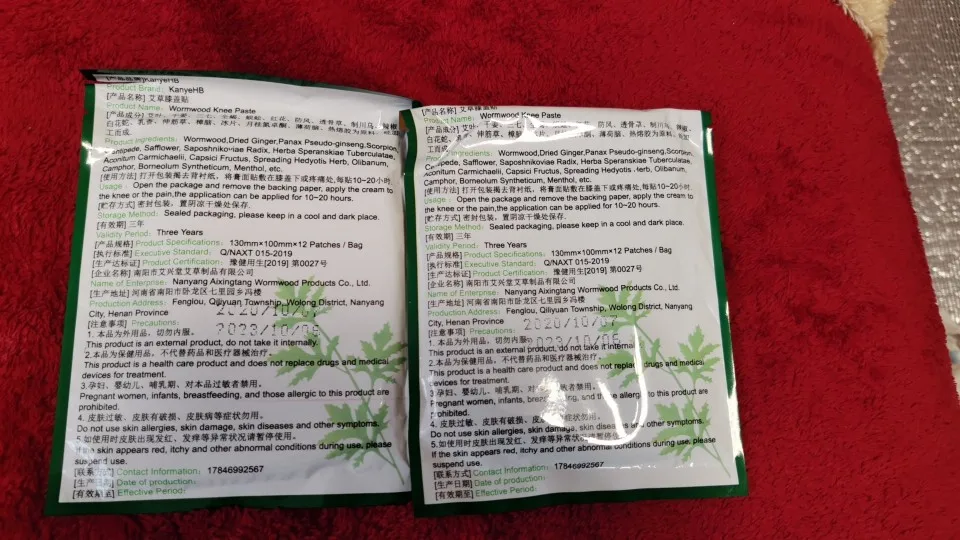 [产品品牌]KanyeHB
Product Brand: KanyeHB
[产品名称] 艾草膝盖贴
Product Name: Wormwood Knee Paste
[产品成分] 艾叶、干姜、三七、全蝎、蜈蚣、红花、防风、透骨草、制川乌、辣椒、
白花蛇、乳香、伸筋草、樟脑、冰片、月桂氮卓酮、薄荷脑、热熔胶为原料、经加
工而成.
Product Ingredients: Wormwood,Dried Ginger,Panax Pseudo-ginseng,Scorpion,
Centipede, Safflower, Saposhnikoviae Radix, Herba Speranskiae Tuberculatae,
Aconitum Carmichaelii, Capsici Fructus, Spreading Hedyotis Herb, Olibanum,
Camphor, Borneolum Syntheticum, Menthol, etc.
[使用方法] 打开包装揭去背衬纸，将膏面贴敷在膝盖下或疼痛处,每贴10~20小时.
Usage: Open the package and remove the backing paper, apply the cream to
the knee or the pain,the application can be applied for 10~20 hours.
[贮存方式] 密封包装，置阴凉干燥处保存.
Storage Method: Sealed packaging, please keep in a cool and dark place.
[有效期] 三年
Validity Period: Three Years
[产品规格] Product Specifications: 130mm×100mm×12 Patches / Bag
[执行标准] Executive Standard: Q/NAXT 015-2019
[生产达标证] Product Certification: 豫健用生[2019] 第0027号
[企业名称] 南阳市艾兴堂艾草制品有限公司
Name of Enterprise: Nanyang Aixingtang Wormwood Products Co., Ltd.
[生产地址] 河南省南阳市卧龙区七里园乡冯楼
Production Address: Fenglou, Qiliyuan Township, Wolong District, Nanyang
City, Henan Province
2020/10/07
[注意事项] Precautions:
2023/10/06
1. 本品为外用品，切勿内服。
This product is an external product, do not take it internally.
2.本品为保健用品，不代替药品和医疗器械治疗。
This product is a health care product and does not replace drugs and medical
devices for treatment.
3.孕妇、婴幼儿、哺乳期、对本品过敏者禁用。
Pregnant women, infants, breastfeeding, and those allergic to this product are
prohibited.
4. 皮肤过敏、皮肤有破损、皮肤病等症状勿用。
Do not use skin allergies, skin damage, skin diseases and other symptoms.
5.如使用时皮肤出现发红、发痒等异常状况请暂停使用。
If the skin appears red, itchy and other abnormal conditions during use, please
suspend use.
[联系方式] Contact Information: 17846992567
[生产日期] Date of production:
[有效期至] Effective Period:
[产品名称] 艾草膝盖贴
Product Name: Wormwood Knee Paste
[产品成分] 艾叶、干姜、三七、红花、防风、透骨草、制川乌、辣椒、
白花蛇、乳香、伸筋草、樟脑、薄荷脑、热熔胶为原料、经加
工而成.
Product Ingredients: Wormwood,Dried Ginger,Panax Pseudo-ginseng,Scorpion,
Centipede, Safflower, Saposhnikoviae Radix, Herba Speranskiae Tuberculatae,
Aconitum Carmichaelii, Capsici Fructus, Spreading Hedyotis Herb, Olibanum,
Camphor, Borneolum Syntheticum, Menthol, etc.
[使用方法] 打开包装揭去背衬纸，将膏面贴敷在膝盖下或疼痛处,每贴10~20小时.
Usage: Open the package and remove the backing paper, apply the cream to
the knee or the pain,the application can be applied for 10~20 hours.
[贮存方式] 密封包装，置阴凉干燥处保存.
Storage Method: Sealed packaging, please keep in a cool and dark place.
[有效期] 三年
Validity Period: Three Years
[产品规格] Product Specifications: 130mm×100mm×12 Patches / Bag
[执行标准] Executive Standard: Q/NAXT 015-2019
[生产达标证] Product Certification: 豫健用生[2019] 第0027号
[企业名称] 南阳市艾兴堂艾草制品有限公司
Name of Enterprise: Nanyang Aixingtang Wormwood Products Co., Ltd.
[生产地址] 河南省南阳市卧龙区七里园乡冯楼
Production Address: Fenglou, Qiliyuan Township, Wolong District, Nanyang
City, Henan Province
2020/10/07
[注意事项] Precautions:
1. 本品为外用品，切勿内服。
2023/10/06
This product is an external product, do not take it internally.
2.本品为保健用品，不代替药品和医疗器械治疗。
This product is a health care product and does not replace drugs and medical
devices for treatment.
3.孕妇、婴幼儿、哺乳期、对本品过敏者禁用。
Pregnant women, infants, and those allergic to this product are
prohibited.
4. 皮肤过敏、皮肤有破损、皮肤病等症状勿用。
Do not use skin allergies, skin damage, skin diseases and other symptoms.
5.如使用时皮肤出现发红、发痒等异常状况请暂停使用
If the skin appears red, itchy and other abnormal conditions during use, please
suspend use.
[联系方式] Contact Information: 17846992567
[生产日期] Date of production:
[有效期至] Effective Period: